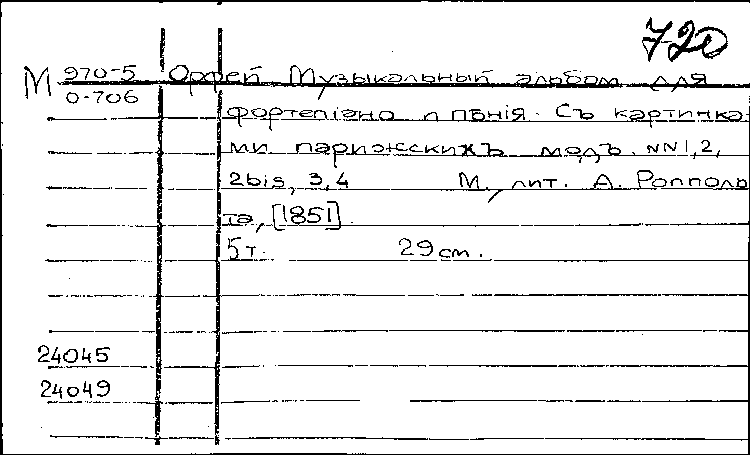 720
М 970-5 Орфей Музыкальный альбом для
О-706
фортепiано и пѣнiя. Съ картинка-
ми парижскихъ модъ. NN1,2,
2bis, 3,4 М., лит. А. Ропполь
та, [1851].
5т. 29 см.
24045
24049